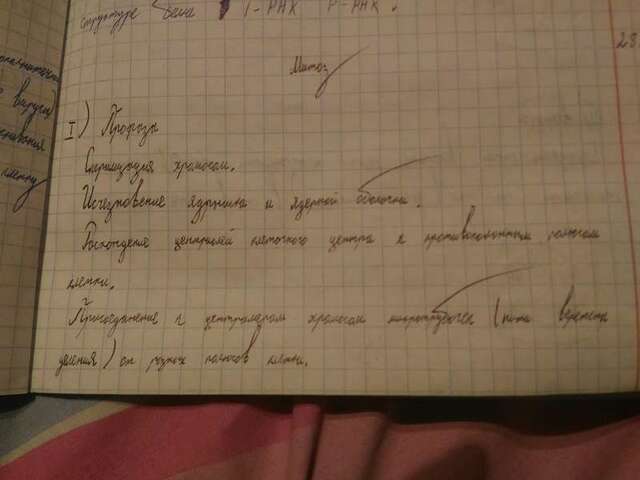 структуре белка т-РАК р-РАК.
28
Митоз
вирусы
I) Профазы
Спирализация хромосом.
Исчезновение ядрышка и ядерной оболочки.
Расхождение центриолей клеточного центра к противоположным полюсам
клетки.
Присоединение к центромерам хромосом микротрубочек (нити веретена
деления) от разных полюсов клетки.